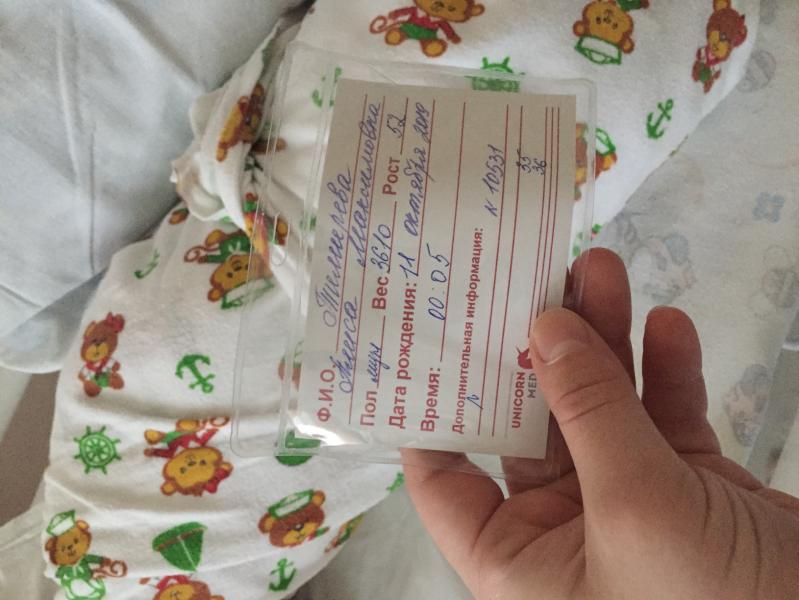 Ф.И.О.
Анна Максимовна
Пол муж Вес 3610 Рост 52
Дата рождения: 11 октября
Время: 00:05
Дополнительная информация:
N 10531
35
36
UNICORN
MED